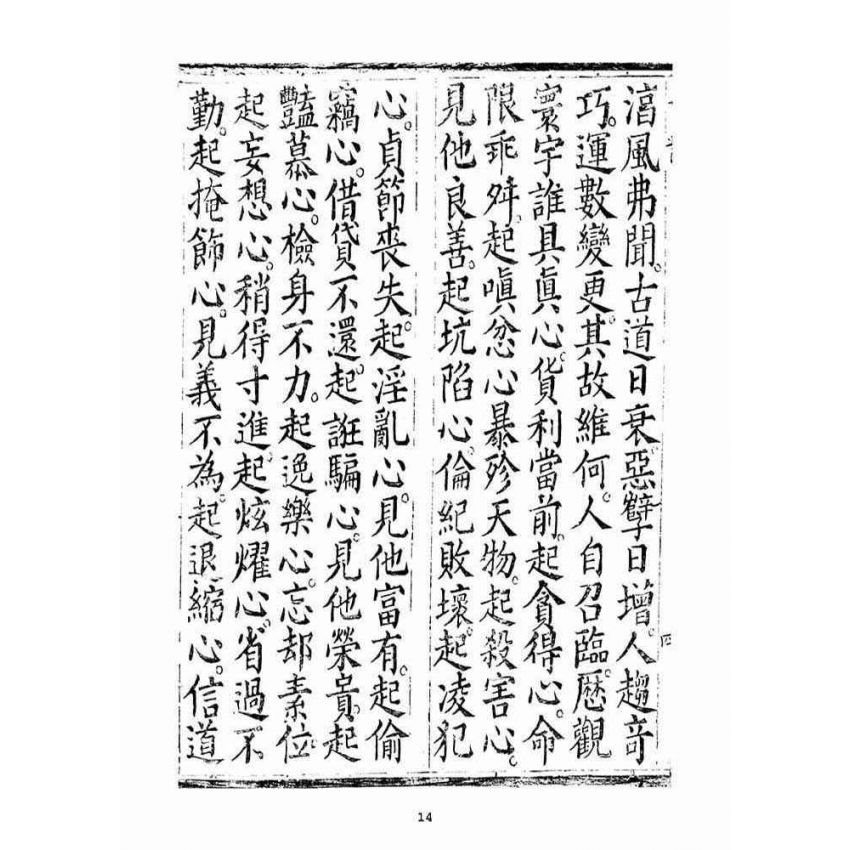 湻風弗聞。古道日衰。惡孽日增。人趨奇
巧。運數變更。其故維何。人自召臨。歷觀
寰宇誰具眞心。貨利當前。起貪得心。命
限乖舛。起嗔忿心。暴殄天物。起殺害心。
見他良善。起坑陷心。倫紀敗壞。起凌犯
心。貞節喪失。起淫亂心。見他富有。起偷
竊心。借貸不還。起誑騙心。見他榮貴。起
豔慕心。檢身不力。起逸樂心。忘却素位。
起妄想心。稍得寸進。起炫耀心。省過不
勤。起掩飾心。見義不為。起退縮心。信道
14